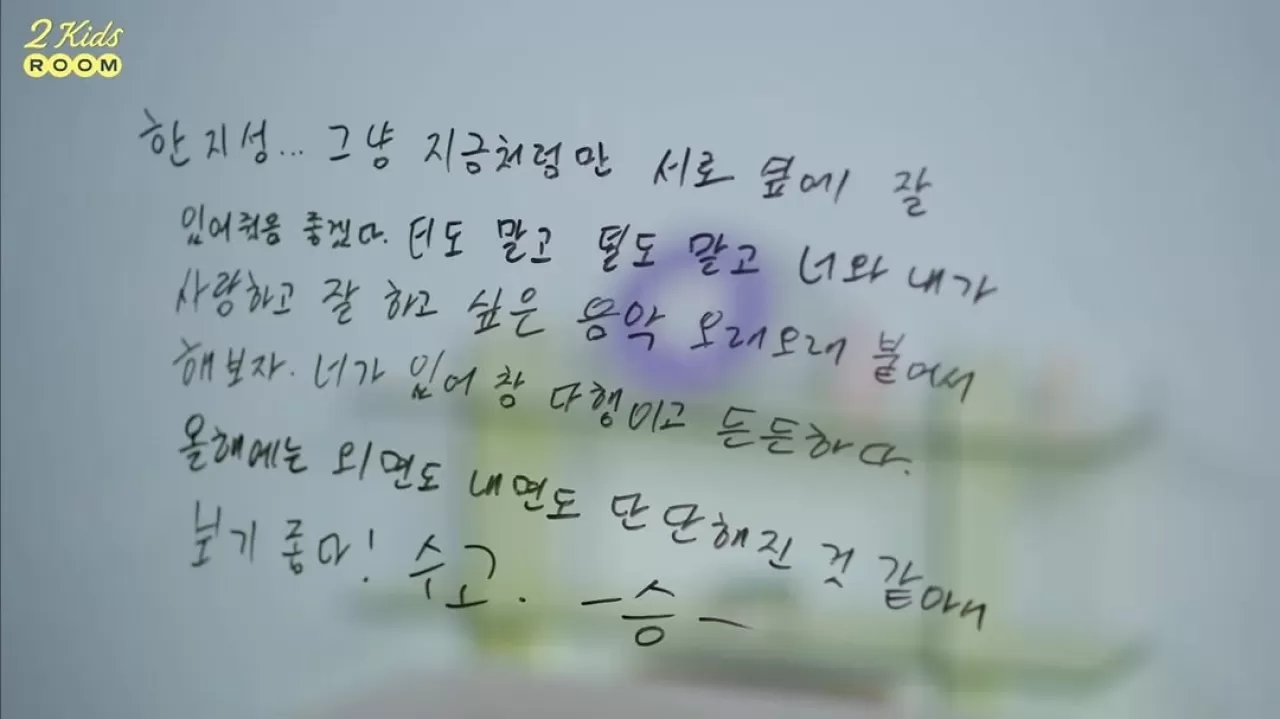 2 Kids
ROOM
한지성... 그냥 지금처럼만 서로 옆에 잘
있어줬음 좋겠다. 더도 말고 덜도 말고 너와 내가
사랑하고 잘 하고 싶은 음악 오래오래 붙어서
해보자. 너가 있어 참 다행이고 든든하다.
올해에는 외면도 내면도 단단해진 것 같아
보기 좋다! 수고. -승-